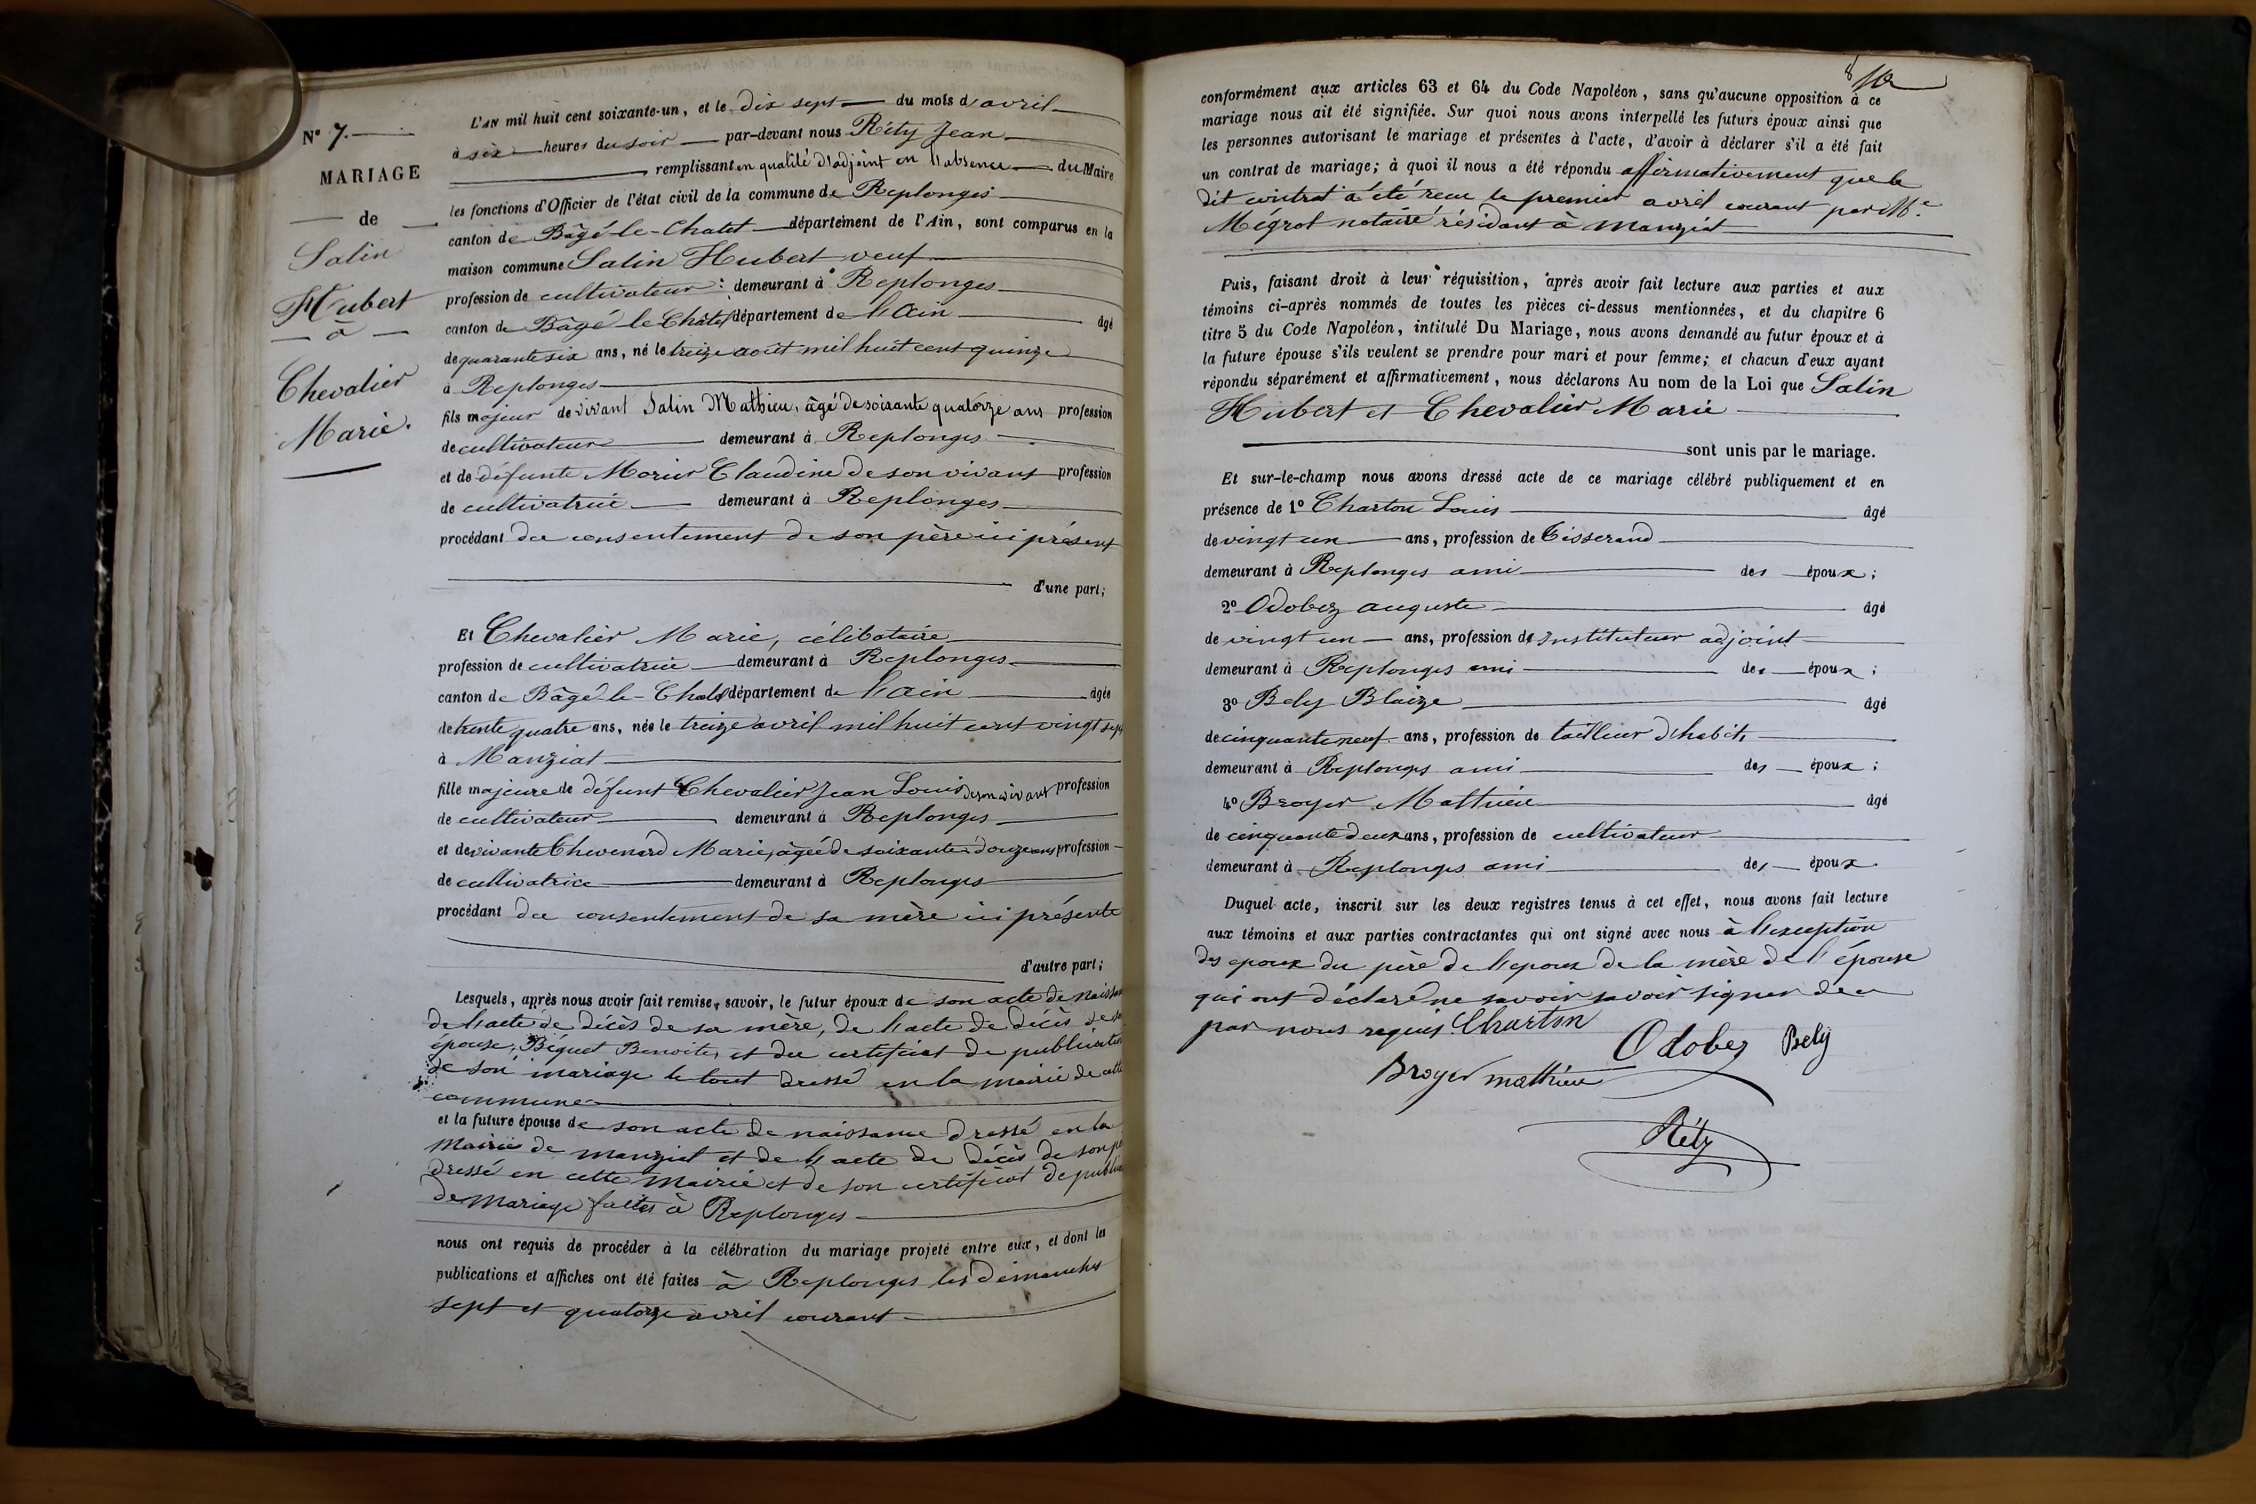 N° 7.
MARIAGE
de
Salin
Hubert
à
Chevalier
Marie.
L'AN mil huit cent soixante-un, et le dix sept du mois d'avril
à six heures du soir par-devant nous Réty Jean
remplissant en qualité d'adjoint en l'absence du Maire
les fonctions d'Officier de l'état civil de la commune de Replonges
canton de Bâgé-le-Chatel département de l'Ain, sont comparus en la
maison commune Salin Hubert veuf
profession de cultivateur demeurant à Replonges
canton de Bâgé le Châtel département de l'Ain âgé
de quarante six ans, né le treize août mil huit cent quinze
à Replonges
fils majeur de vivant Salin Mathieu, âgé de soixante quatorze ans profession
de cultivateur demeurant à Replonges
et de défunte Morier Claudine de son vivant profession
de cultivatrice demeurant à Replonges
procédant du consentement de son père ici présent
d'une part;
Et Chevalier Marie, célibataire
profession de cultivatrice demeurant à Replonges
canton de Bâgé-le-Chatel département de l'Ain âgée
de trente quatre ans, née le treize avril mil huit cent vingt sept
à Manziat
fille majeure de défunt Chevalier Jean Louis de son vivant profession
de cultivateur demeurant à Replonges
et de vivante Chevenard Marie, âgée de soixante douze ans profession
de cultivatrice demeurant à Replonges
procédant du consentement de sa mère ici présente
d'autre part;
Lesquels, après nous avoir fait remise, savoir, le futur époux de son acte de naissan
de l'acte de décès de sa mère, de l'acte de décès de
épouse, Béquet Benoite, et du certificat de publication
de son mariage le tout dressé en la mairie de cette
commune
et la future épouse de son acte de naissance dressé en la
Mairie de manziat et de l'acte de décès de son
dressé en cette Mairie et de son certificat de
de Mariage faites à Replonges
nous ont requis de procéder à la célébration du mariage projeté entre eux, et dont les
publications et affiches ont été faites à Replonges les Dimanches
sept et quatorze avril courant
conformément aux articles 63 et 64 du Code Napoléon, sans qu'aucune opposition à ce
mariage nous ait été signifiée. Sur quoi nous avons interpellé les futurs époux ainsi que
les personnes autorisant le mariage et présentes à l'acte, d'avoir à déclarer s'il a été fait
un contrat de mariage; à quoi il nous a été répondu affirmativement que le
dit contrat a été recu le premier avril courant par Me
Mégrot notaire résidant à Manziat
Puis, faisant droit à leur réquisition, après avoir fait lecture aux parties et aux
témoins ci-après nommés de toutes les pièces ci-dessus mentionnées, et du chapitre 6
titre 5 du Code Napoléon, intitulé Du Mariage, nous avons demandé au futur époux et à
la future épouse s'ils veulent se prendre pour mari et pour femme; et chacun d'eux ayant
répondu séparément et affirmativement, nous déclarons Au nom de la Loi que Salin
Hubert et Chevalier Marie
sont unis par le mariage.
Et sur-le-champ nous avons dressé acte de ce mariage célébré publiquement et en
présence de 1° Charton Louis âgé
de vingt un ans, profession de Tisserand
demeurant à Replonges ami des époux;
2° Odobez auguste âgé
de vingt un ans, profession de instituteur adjoint
demeurant à Replonges ami des époux;
3° Bely Blaize âgé
de cinquante neuf ans, profession de tailleur d'habits
demeurant à Replonges ami des époux;
4° Broyer Mathieu âgé
de cinquante deux ans, profession de cultivateur
demeurant à Replonges ami des époux.
Duquel acte, inscrit sur les deux registres tenus à cet effet, nous avons fait lecture
aux témoins et aux parties contractantes qui ont signé avec nous à l'exception
des epoux du père de l'epoux de la mère de l'épouse
qui ont déclaré ne savoir savoir signer de ce
par nous requis. Charton
Odobez Bely
Broyer mathieu
Réty